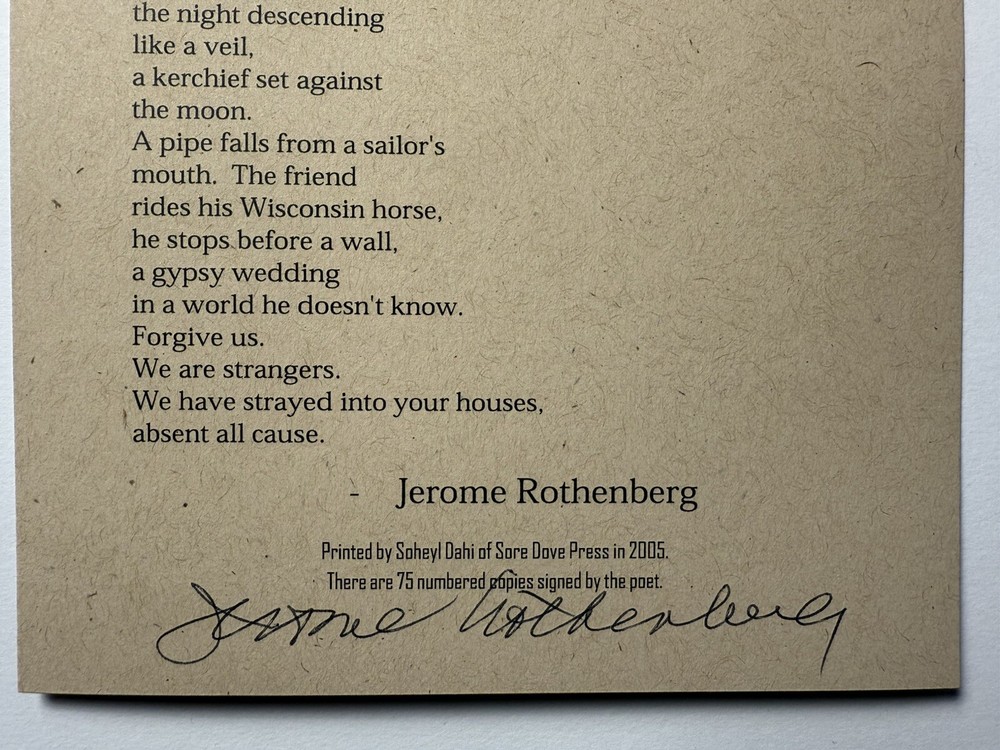 the night descending
like a veil,
a kerchief set against
the moon.
A pipe falls from a sailor's
mouth.  The friend
rides his Wisconsin horse,
he stops before a wall,
a gypsy wedding
in a world he doesn't know.
Forgive us.
We are strangers.
We have strayed into your houses,
absent all cause.
- Jerome Rothenberg
Printed by Soheyl Dahi of Sore Dove Press in 2005.
There are 75 numbered copies signed by the poet.
Jerome Rothenberg